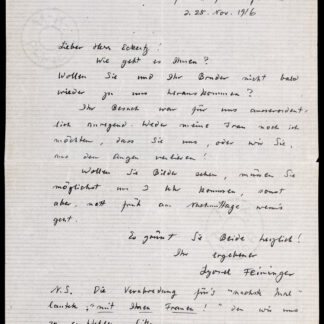 2. 28. Nov. 1916
Lieber Herr Eckertz!
Wie geht es Ihnen?
Wollen Sie und Ihr Bruder nicht bald
wieder zu uns herauskommen?
Ihr Besuch war für uns ausserordent-
lich anregend. Weder meine Frau noch ich
möchten, dass Sie uns, oder wir Sie,
aus den Augen verlieren!
Wollen Sie Bilder sehen, müssen Sie
möglichst um 2 Uhr kommen, sonst
aber, früh am Nachmittage
gut.
Es grüsst Sie Beide herzlich!
Ihr ergebener
Lyonel Feininger
N.S. Die Verabredung für's "nächste Mal"
lautete, "mit Ihren Frauen!" den wir uns